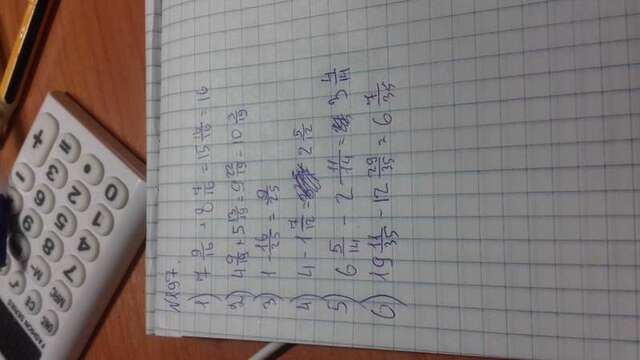 N197.
1) 7 9/16 + 8 7/16 = 15 16/16 = 16
2) 4 9/19 + 5 13/19 = 9 22/19 = 10 3/19
3) 1 - 16/25 = 9/25
4) 4 - 1 7/12 = 2 5/12
5) 6 5/14 - 2 11/14 = 3 4/14
6) 19 11/35 - 12 29/35 = 6 7/35
0
1
2
3
4
5
6
7
8
9
+
-
×
•
M-
CE
MRC